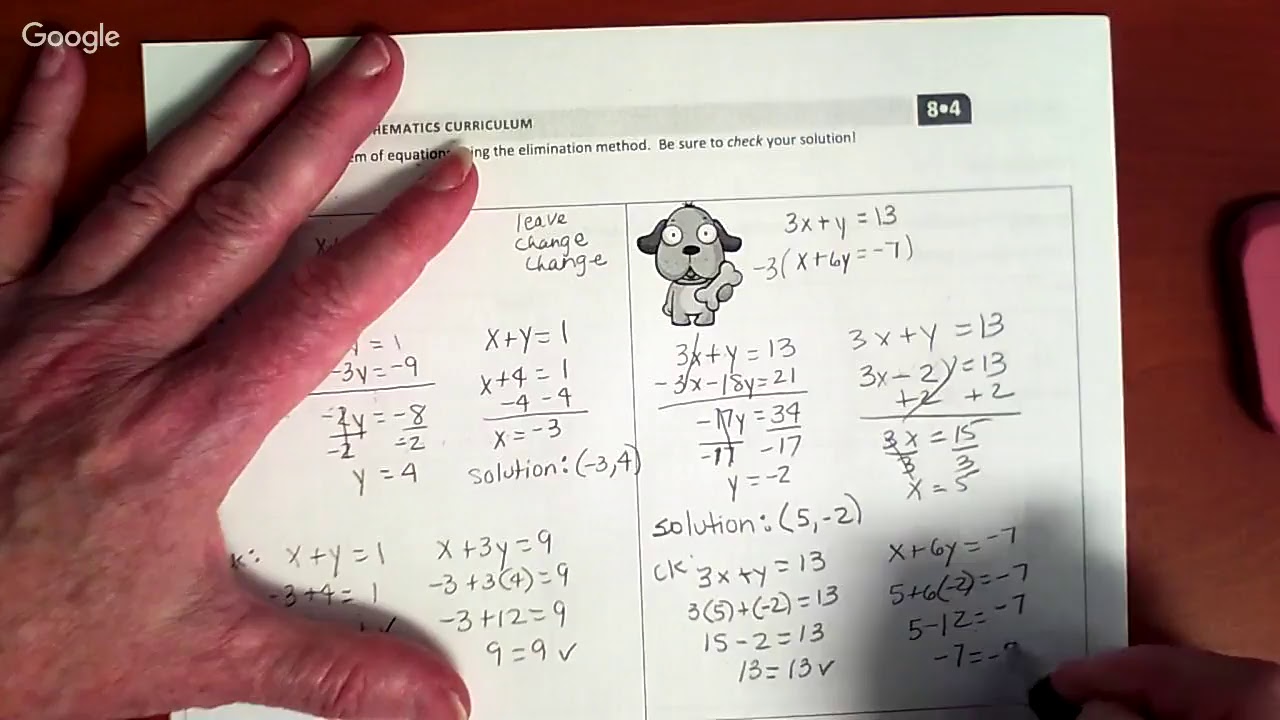 Google
8•4
HEMATICS CURRICULUM
em of equation ing the elimination method. Be sure to check your solution!
leave
change
change
= 1
-3y = -9
-2y = -8
-2 -2
y = 4
x+y = 1
x+4 = 1
-4 -4
x = -3
solution: (-3,4)
k: x+y = 1
-3+4 = 1
x+3y = 9
-3+3(4) = 9
-3+12 = 9
9 = 9 ✓
3x+y = 13
-3(x+6y = -7)
3x+y = 13
-3x-18y = 21
-17y = 34
-17 -17
y = -2
3x+y = 13
3x-2 = 13
+2 +2
3x = 15
3 3
x = 5
solution: (5,-2)
ck: 3x+y = 13
3(5)+(-2) = 13
15-2 = 13
13 = 13 ✓
x+6y = -7
5+6(-2) = -7
5-12 = -7
-7 = -